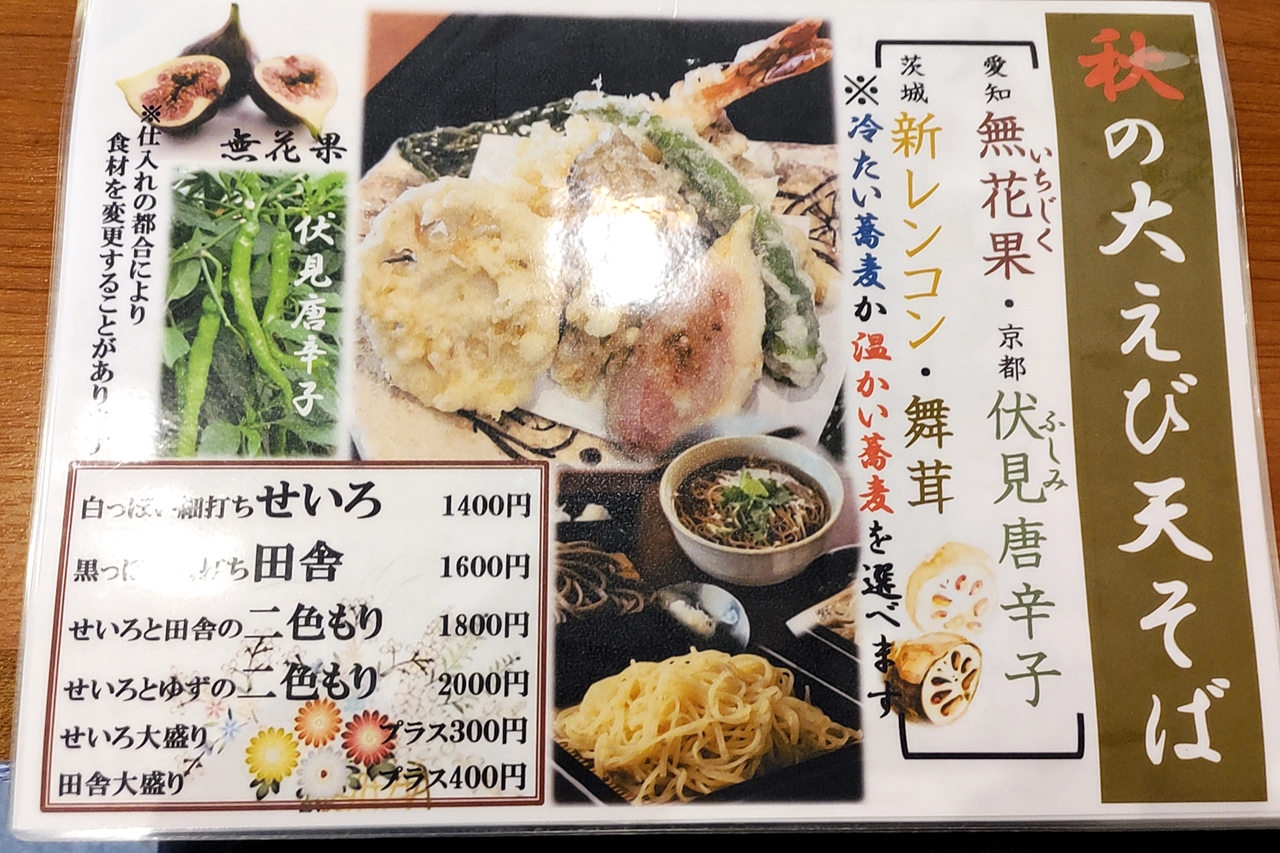 秋の大えび天そば
愛知 無花果・京都 伏見唐辛子
いちじく
ふしみ
茨城 新レンコン・舞茸
※冷たい蕎麦か温かい蕎麦を選べます
無花果
伏見唐辛子
※仕入れの都合により
食材を変更することがあり
白っぽい細打ちせいろ 1400円
黒っ 打ち田舎 1600円
せいろと田舎の二色もり 1800円
せいろとゆずの二色もり 2000円
せいろ大盛り プラス300円
田舎大盛り プラス400円